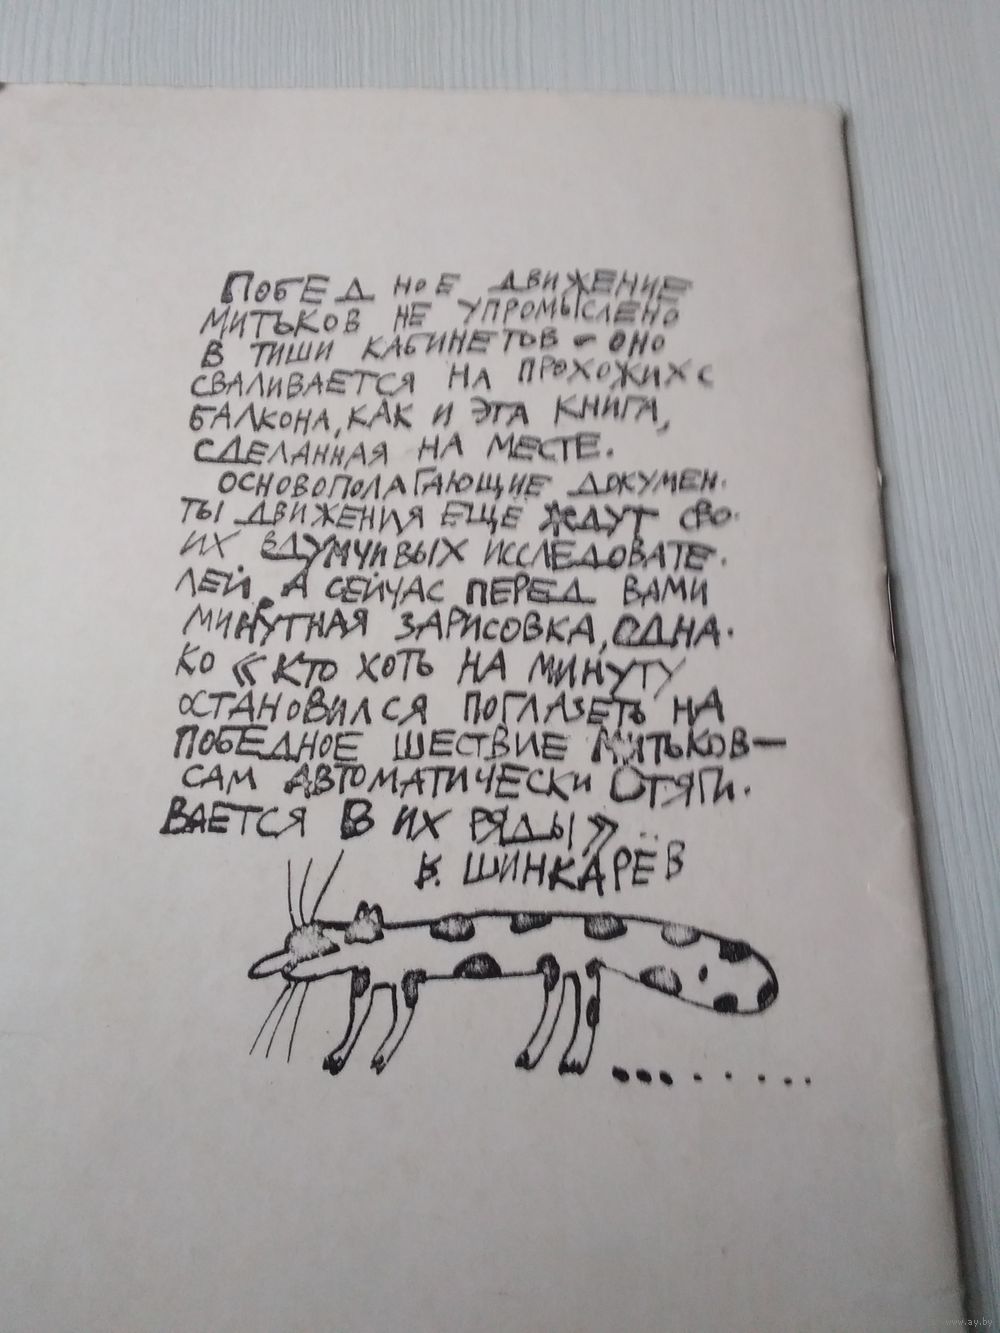 ПОБЕДНОЕ ДВИЖЕНИЕ
МИТЬКОВ НЕ УПРОМЫСЛЕНО
В ТИШИ КАБИНЕТОВ – ОНО
СВАЛИВАЕТСЯ НА ПРОХОЖИХ С
БАЛКОНА, КАК И ЭТА КНИГА,
СДЕЛАННАЯ НА МЕСТЕ.
ОСНОВОПОЛАГАЮЩИЕ ДОКУМЕН-
ТЫ ДВИЖЕНИЯ ЕЩЁ ЖДУТ СВО-
ИХ ВДУМЧИВЫХ ИССЛЕДОВАТЕ-
ЛЕЙ. А СЕЙЧАС ПЕРЕД ВАМИ
МИНУТНАЯ ЗАРИСОВКА, ОДНА-
КО «КТО ХОТЬ НА МИНУТУ
ОСТАНОВИЛСЯ ПОГЛАЗЕТЬ НА
ПОБЕДНОЕ ШЕСТВИЕ МИТЬКОВ —
САМ АВТОМАТИЧЕСКИ ОТЯГИ-
ВАЕТСЯ В ИХ РЯДЫ»
В. ШИНКАРЁВ
www.ay.by